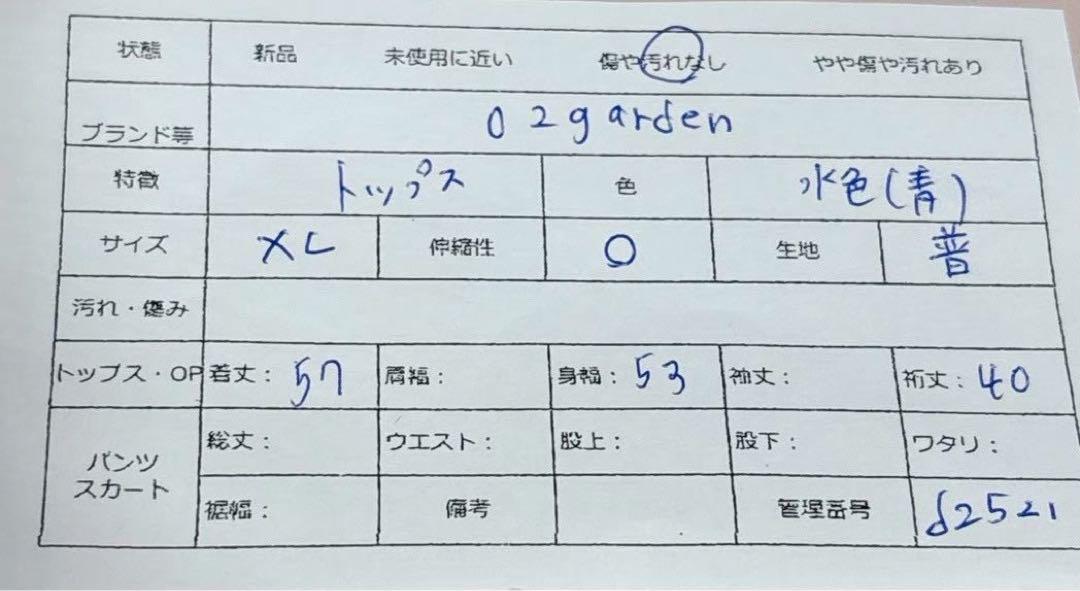 状態 新品 未使用に近い 傷や汚れなし やや傷や汚れあり
ブランド等 02garden
特徴 トップス 色 水色(青)
サイズ XL 伸縮性 ○ 生地 普
汚れ・傷み
トップス・OP 着丈: 57 肩幅: 身幅: 53 袖丈: 裄丈: 40
パンツ スカート
総丈: ウエスト: 股上: 股下: ワタリ:
裾幅: 備考 管理番号 d2521